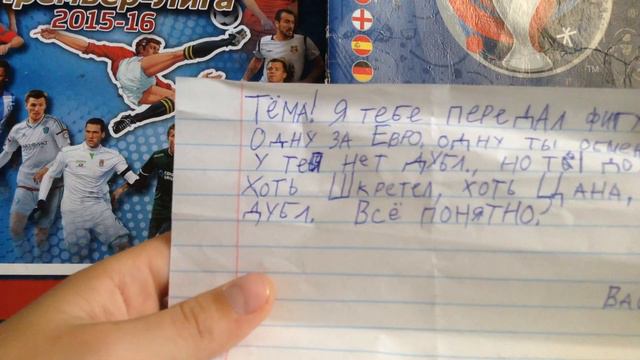 Премьер-Лига
2015-16
ТЁМА! Я ТЕБЕ ПЕРЕДАЛ ФИГУ
ОДНУ ЗА ЕВРО, ОДНУ ТЫ ОБМЕН
У ТЕЯ НЕТ ДУБЛ., НО ТЫ ДО
ХОТЬ ШКРТЕЛ, ХОТЬ ЦАНА,
ДУБЛ. ВСЁ ПОНЯТНО.
ВАС
TM